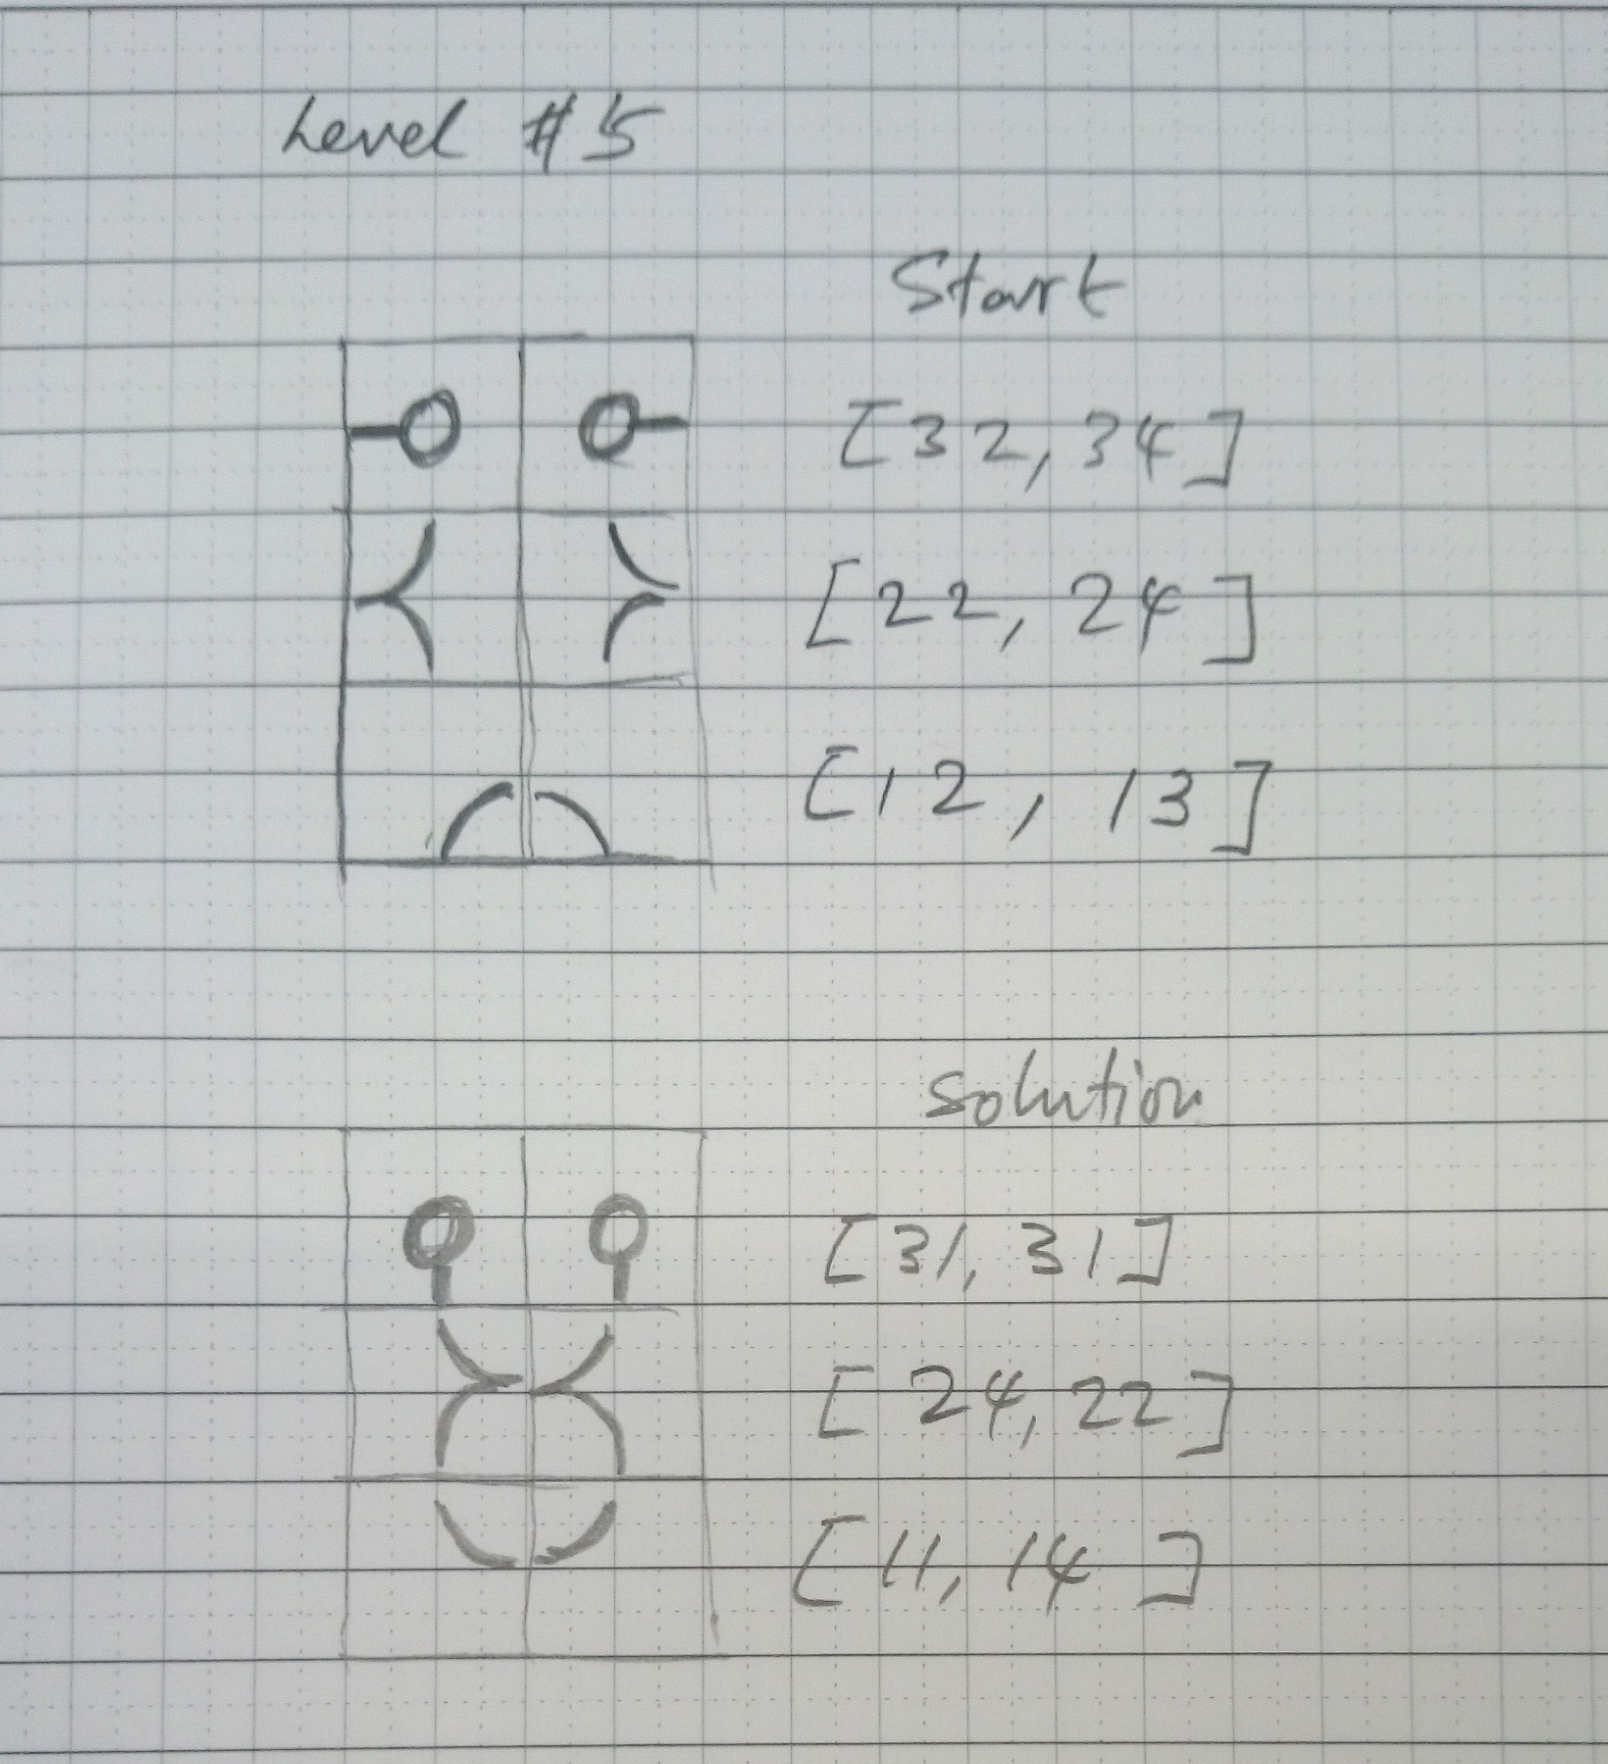 Level #5
Start
[32, 34]
[22, 24]
[12, 13]
solution
[31, 31]
[24, 22]
[11, 14]